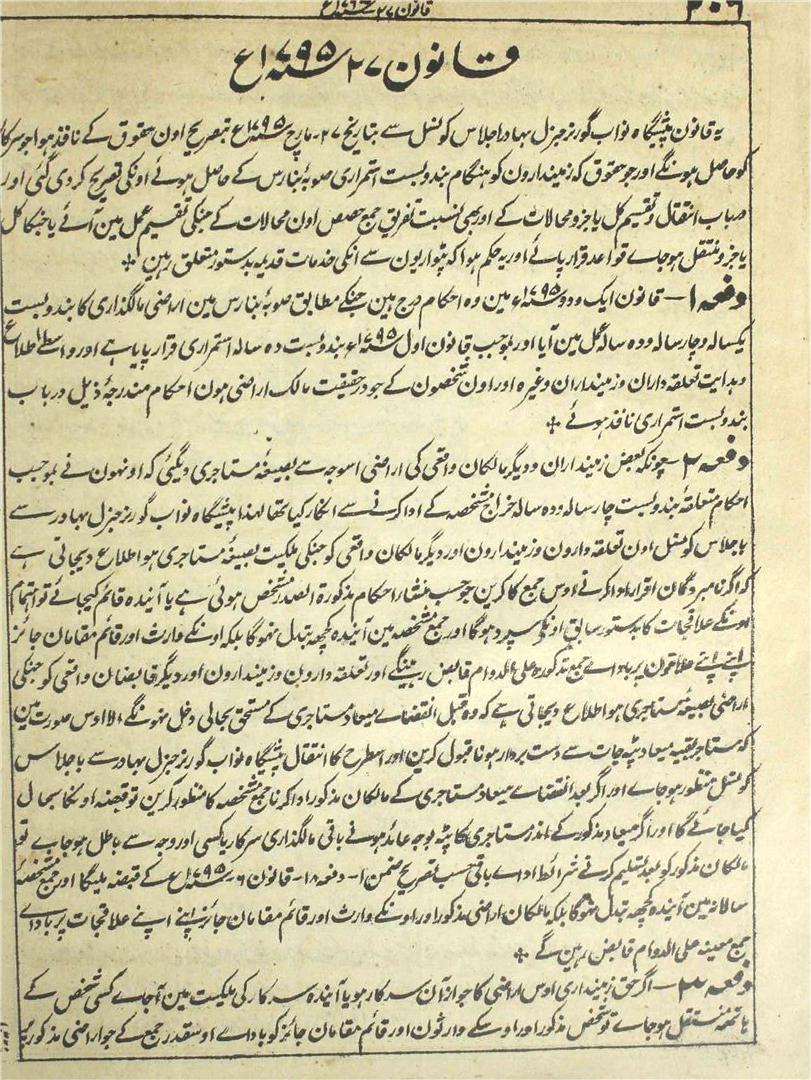 ۳۰۶
قانون ۲۷ سنہ ۱۷۹۵ع
قانون ۲۷ سنہ ۱۷۹۵ع
یہ قانون پیشگاہ نواب گورنر جنرل بہادر اجلاس کونسل سے بتاریخ ۲۷۔ مارچ سنہ ۱۷۹۵ع بتصریح اون حقوق کے نافذ ہوا جو سرکار
کو حاصل ہونگے اور جو حقوق کہ زمیندارون کو ہنگام بندوبست استمراری صوبۂ بنارس کے حاصل ہوئے اونکی تصریح کر دی گئی اور
درباب انتقال و تقسیم کل یا جزو محالات کے اور بھی نسبت تفریق جمع حصص اون محالات کے جنکی تقسیم عمل مین آئے یا جنکا کل
یا جزو منتقل ہو جاے قواعد قرار پائے اور یہ حکم ہوا کہ پٹواریون سے انکی خدمات قدیمہ بدستور متعلق رہین ÷
دفعہ ۱۔ قانون ایک و دو سنہ ۱۷۹۵ء مین وہ احکام درج ہین جنکے مطابق صوبۂ بنارس مین اراضی مالگذاری کا بندوبست
یکسالہ و چار سالہ و دہ سالہ عمل مین آیا اور بموجب قانون اول سنہ ۱۷۹۵ء بندوبست دہ سالہ استمراری قرار پایا ہے اور واسطے اطلاع
و ہدایت تعلقہ داران و زمینداران وغیرہ اور اون شخصون کے جو درحقیقت مالک اراضی ہون احکام مندرجۂ ذیل درباب
بندوبست استمراری نافذ ہوئے ÷
دفعہ ۲۔ چونکہ بعض زمینداران و دیگر مالکان واقعی کی اراضی اسوجہ سے بصیغۂ مستاجری دیگئی کہ اونہون نے بموجب
احکام متعلقۂ بندوبست چار سالہ و دہ سالہ خراج مشخصہ کے ادا کرنے سے انکار کیا تھا لہذا پیشگاہ نواب گورنر جنرل بہادر سے
باجلاس کونسل اون تعلقہ دارون و زمیندارون اور دیگر مالکان واقعی کو جنکی ملکیت بصیغۂ مستاجری ہو اطلاع دیجاتی ہے
کہ اگر نامبردگان اقرار ادا کرنے اوس جمع کا کرین جو حسب منشاء احکام مذکورۃ الصدر مشخص ہوئی ہے یا آیندہ قائم کیجائے تو اہتمام
اونکے علاقجات کا بدستور سابق اونکو سپرد ہوگا اور جمع مشخصہ مین آیندہ کچھ تبدل نہوگا بلکہ اونکے وارث اور قائم مقامان جائز
اپنے اپنے علاقون پر باداے جمع مذکورہ علی الدوام قابض رہینگے اور تعلقہ دارون و زمیندارون اور دیگر قابضان واقعی کو جنکی
اراضی بصیغۂ مستاجری ہو اطلاع دیجاتی ہے کہ وہ قبل انقضاے میعاد مستاجری کے مستحق بحالی دخل نہونگے الا اوس صورت مین
کہ مستاجر بقیہ میعاد پٹہ جات سے دست بردار ہونا قبول کرین اور اسطرح کا انتقال پیشگاہ نواب گورنر جنرل بہادر سے باجلاس
کونسل منظور ہو جاے اور اگر بعد انقضاے میعاد مستاجری کے مالکان مذکور ادا کرنا جمع مشخصہ کا منظور کرین تو قبضہ اونکا بحال
کیا جائے گا اور اگر میعاد مذکور کے اندر مستاجری کا پٹہ بوجہ عائد ہونے باقی مالگذاری سرکار یا کسی اور وجہ سے باطل ہو جاے تو
مالکان مذکور کو بعد تسلیم کرنے شرائط اداے باقی حسب تصریح ضمن ۱۔ دفعہ ۱۸۔ قانون ۶۔ سنہ ۱۷۹۵ع کے قبضہ ملیگا اور جمع مشخصہ
سالانہ مین آیندہ کچھ تبدل نہوگا بلکہ مالکان اراضی مذکور اور اونکے وارث اور قائم مقامان جائز اپنے اپنے علاقجات پر باداے
جمع معینہ علی الدوام قابض رہین گے ÷
دفعہ ۳۔ اگر حق زمینداری اوس اراضی کا جو ازآن سرکار ہو یا آیندہ سرکار کی ملکیت مین آجاے کسی شخص کے
ہاتھ منتقل ہو جاے تو شخص مذکور اور اوسکے وارثون اور قائم مقامان جائز کو باداے اوسقدر جمع کے جو اراضی مذکور پر